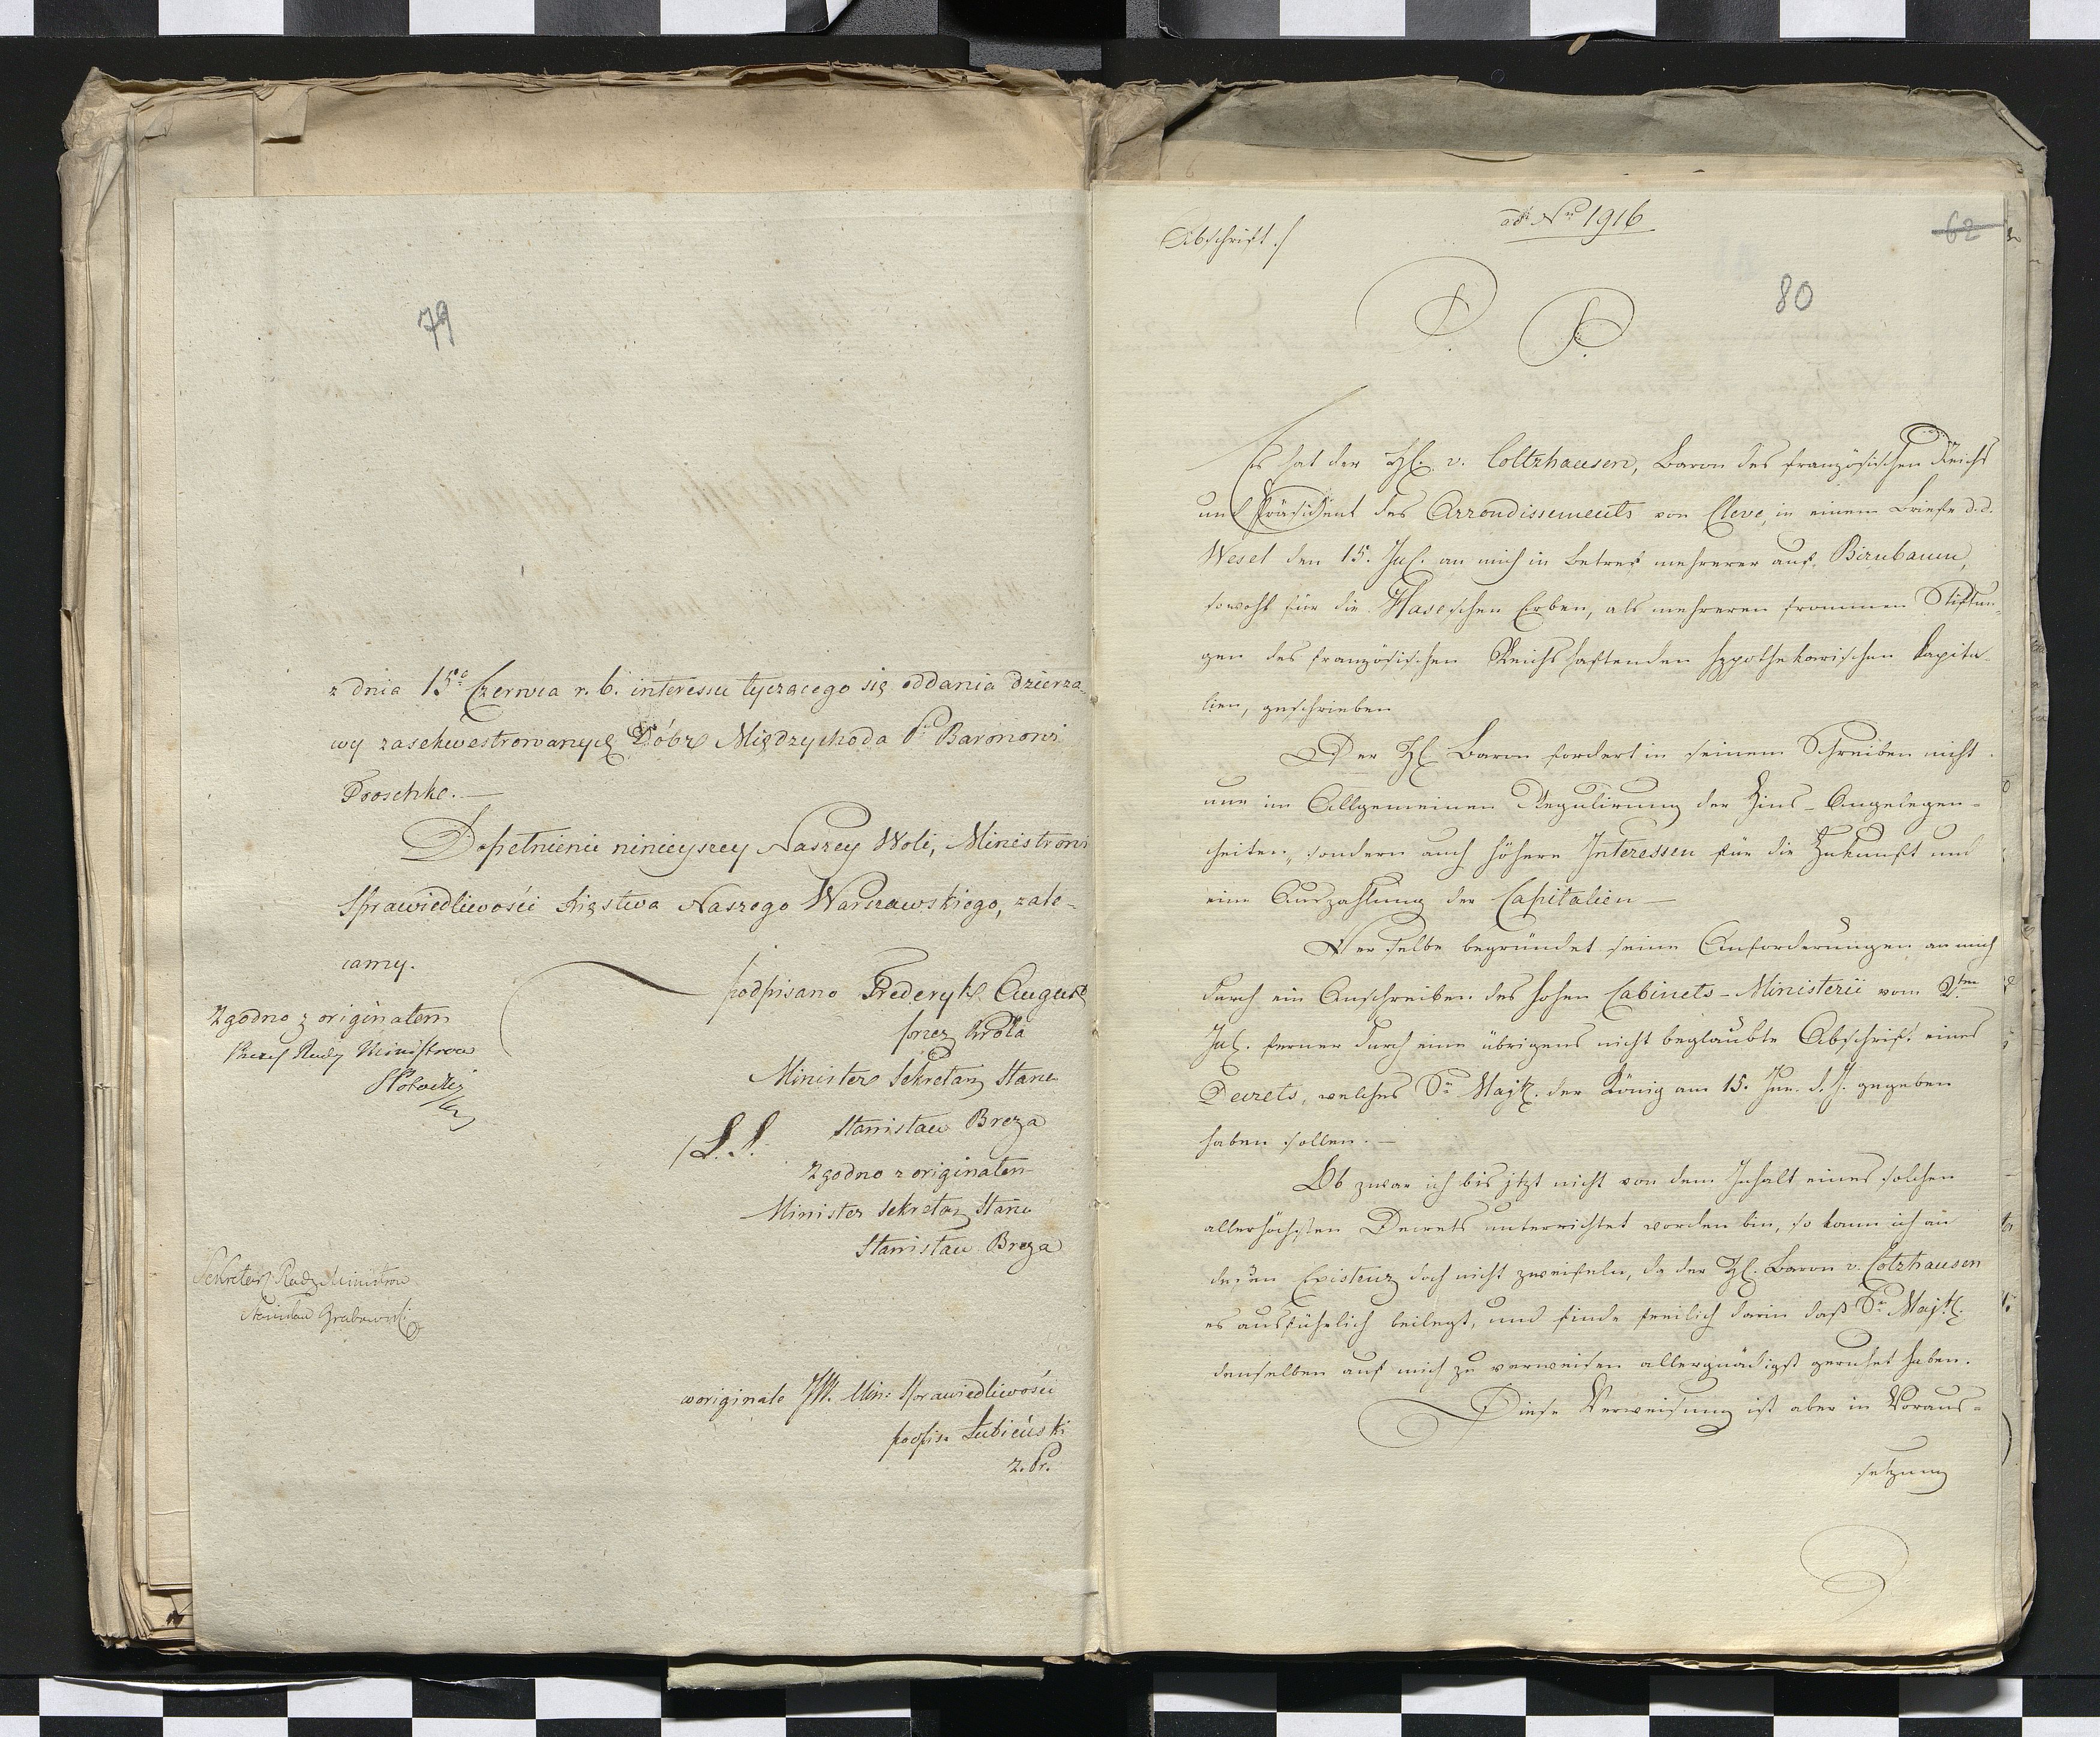 79
z dnia 15º Czerwca r. b. interessu tyczącego się oddania dzierza-
wy zasekwestrowanych Dóbr Międzychoda Pu Baronowi
Troschke.—
Dopełnienie ninieyszey Naszey Woli, Ministrowi
Sprawiedliwości Xięstwa Naszego Warszawskiego, zale-
camy.
podpisano Frederyk August
przez Króla
Minister Sekretarz Stanu
/L.S. Stanisław Breza
Zgodno z originałem
Minister Sekretarz Stanu
Stanisław Breza
Zgodno z originałem
Prezes Rady Ministrow
Sekretarz Rady Ministrow
Stanisław Grabowski
w originale JW. Min: Sprawiedliwości
podpis. Łubieński
z. Pr.
Abschrift./
ad Nro 1916
62
80
P. P.
Es hat der H. v. Coltzhausen, Baron des französischen Reichs
und Präsident des Arrondissements von Cleve, in einem Briefe d. d.
Wesel den 15. Jul. an mich in Betref mehrerer auf Birnbaum,
sowohl für die Haseschen Erben, als mehreren frommen Stiftun-
gen des französischen Reichs haftenden hypothekarischen Kapita-
lien, geschrieben
Der H. Baron fordert in seinem Schreiben nicht
nur im Allgemeinen Regulirung der Zins-Angelegen-
heiten, sondern auch höhere Interessen für die Zukunft und
eine Auszahlung der Capitalien —
Derselbe begründet seine Anforderungen an mich
durch ein Anschreiben des hohen Cabinets-Ministerii vom 2ten
Jul. ferner durch eine übrigens nicht beglaubte Abschrift eines
Decrets, welches Sr Majt. der König am 15. Jun. d. J. gegeben
haben sollen. —
Ob zwar ich bis jtzt nicht von dem Inhalt eines solchen
allerhöchsten Decrets unterrichtet worden bin, so kann ich an
dessen Existenz doch nicht zweifeln, da der H. Baron v. Cotzhausen
es ausführlich beilegt, und finde freilich darin daß Sr Majt.
denselben auf mich zu verweisen allergnädigst geruhet haben.
Diese Verweisung ist aber in Voraus-
setzung